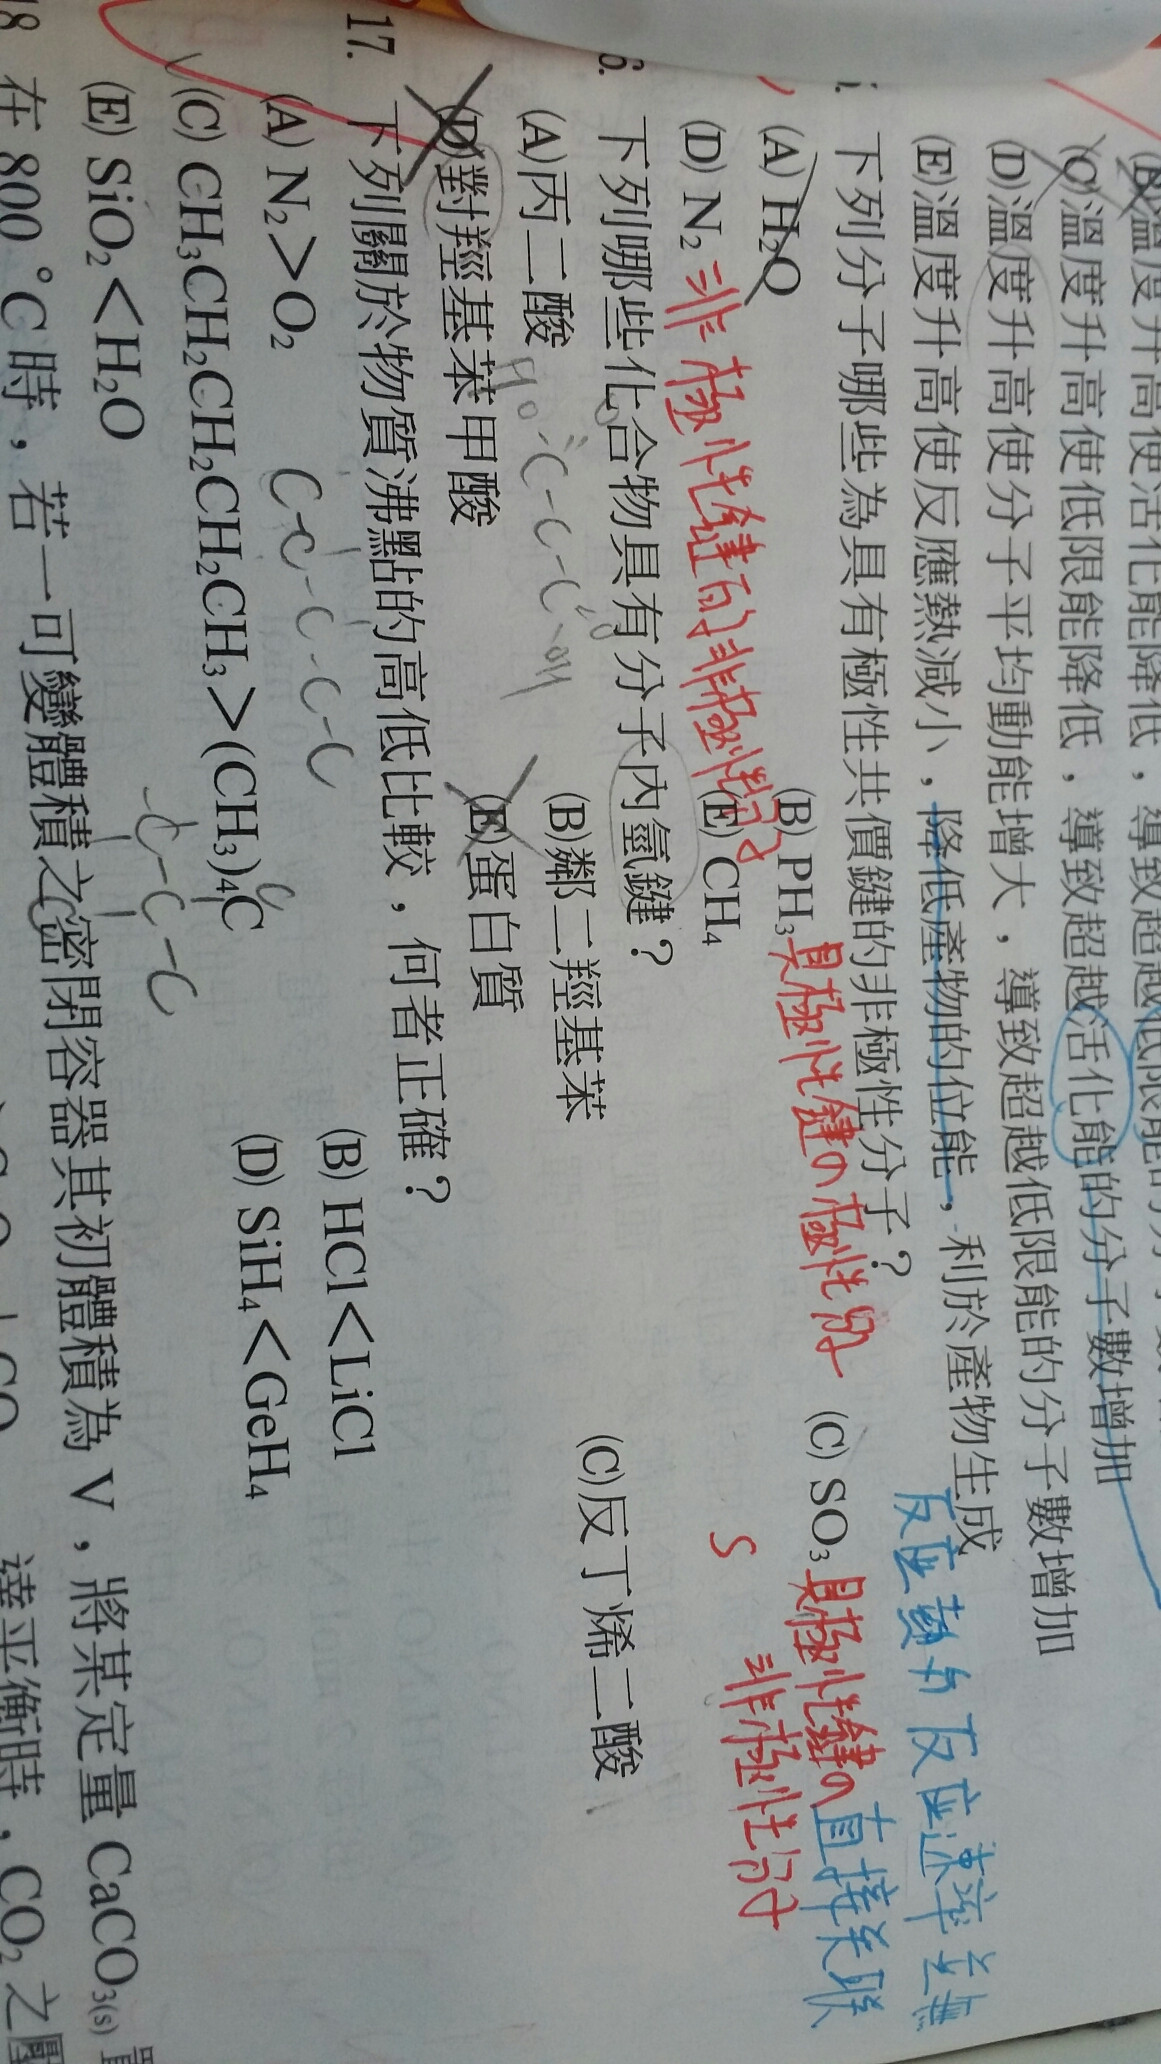 溫度升高使活化能降低，導致超越低限能的分子數增
(C)溫度升高使低限能降低，導致超越活化能的分子數增加
(D)溫度升高使分子平均動能增大，導致超越低限能的分子數增加
(E)溫度升高使反應熱減小，降低產物的位能，利於產物生成
反应熱和反应速率並無
直接关联
下列分子哪些為具有極性共價鍵的非極性分子？
(A) H₂O (B) PH₃ 具極性鍵の極性分子 (C) SO₃ 具極性鍵の
非極性分子
S
(D) N₂ 非極性鍵的非極性分子 (E) CH₄
6. 下列哪些化合物具有分子內氫鍵？
(A)丙二酸 (B)鄰二羥基苯 (C)反丁烯二酸
HO-C-C-C-OH
O O
(D)對羥基苯甲酸 (E)蛋白質
17. 下列關於物質沸點的高低比較，何者正確？
(A) N₂＞O₂ (B) HCl＜LiCl
C-C-C-C-C
(C) CH₃CH₂CH₂CH₂CH₂CH₃＞(CH₃)₄C (D) SiH₄＜GeH₄
C
-C-C-C
C
(E) SiO₂＜H₂O
18 在 800 °C 時，若一可變體積之密閉容器其初體積為 V，將某定量 CaCO₃₍ₛ₎
達平衡時，CO₂ 之